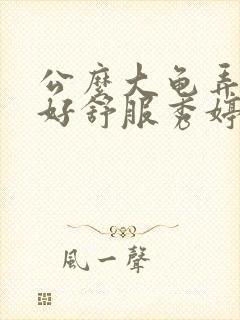 公麽大龟弄
好舒服秀婷
風一聲